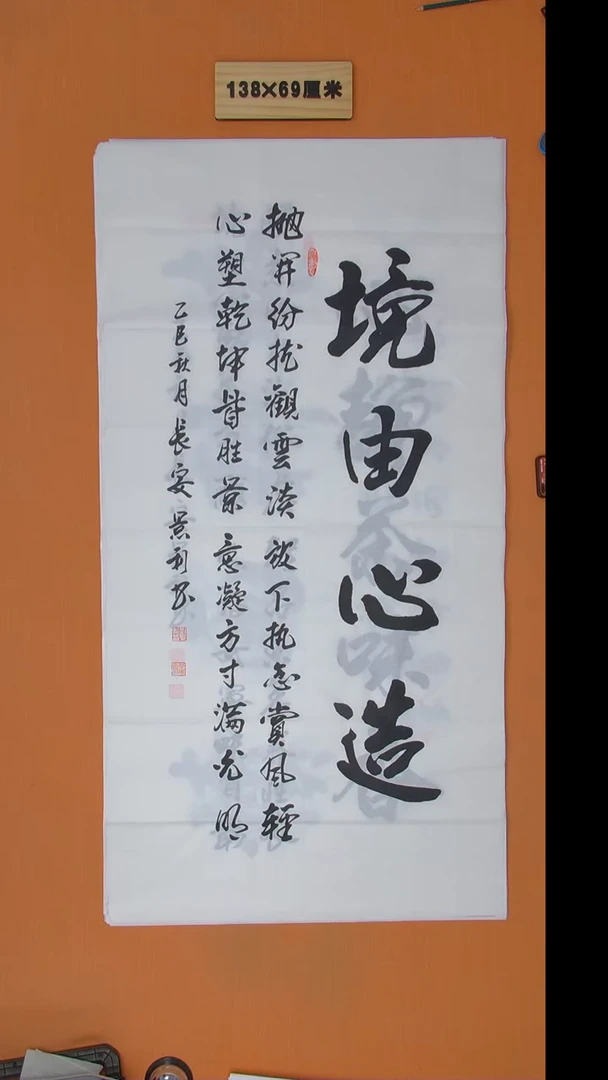 138×69厘米
境由心造
抛开纷扰觀雲淡放下执念賞风輕
心塑乾坤皆胜景意凝方寸满光明
乙巳秋月長安景利书